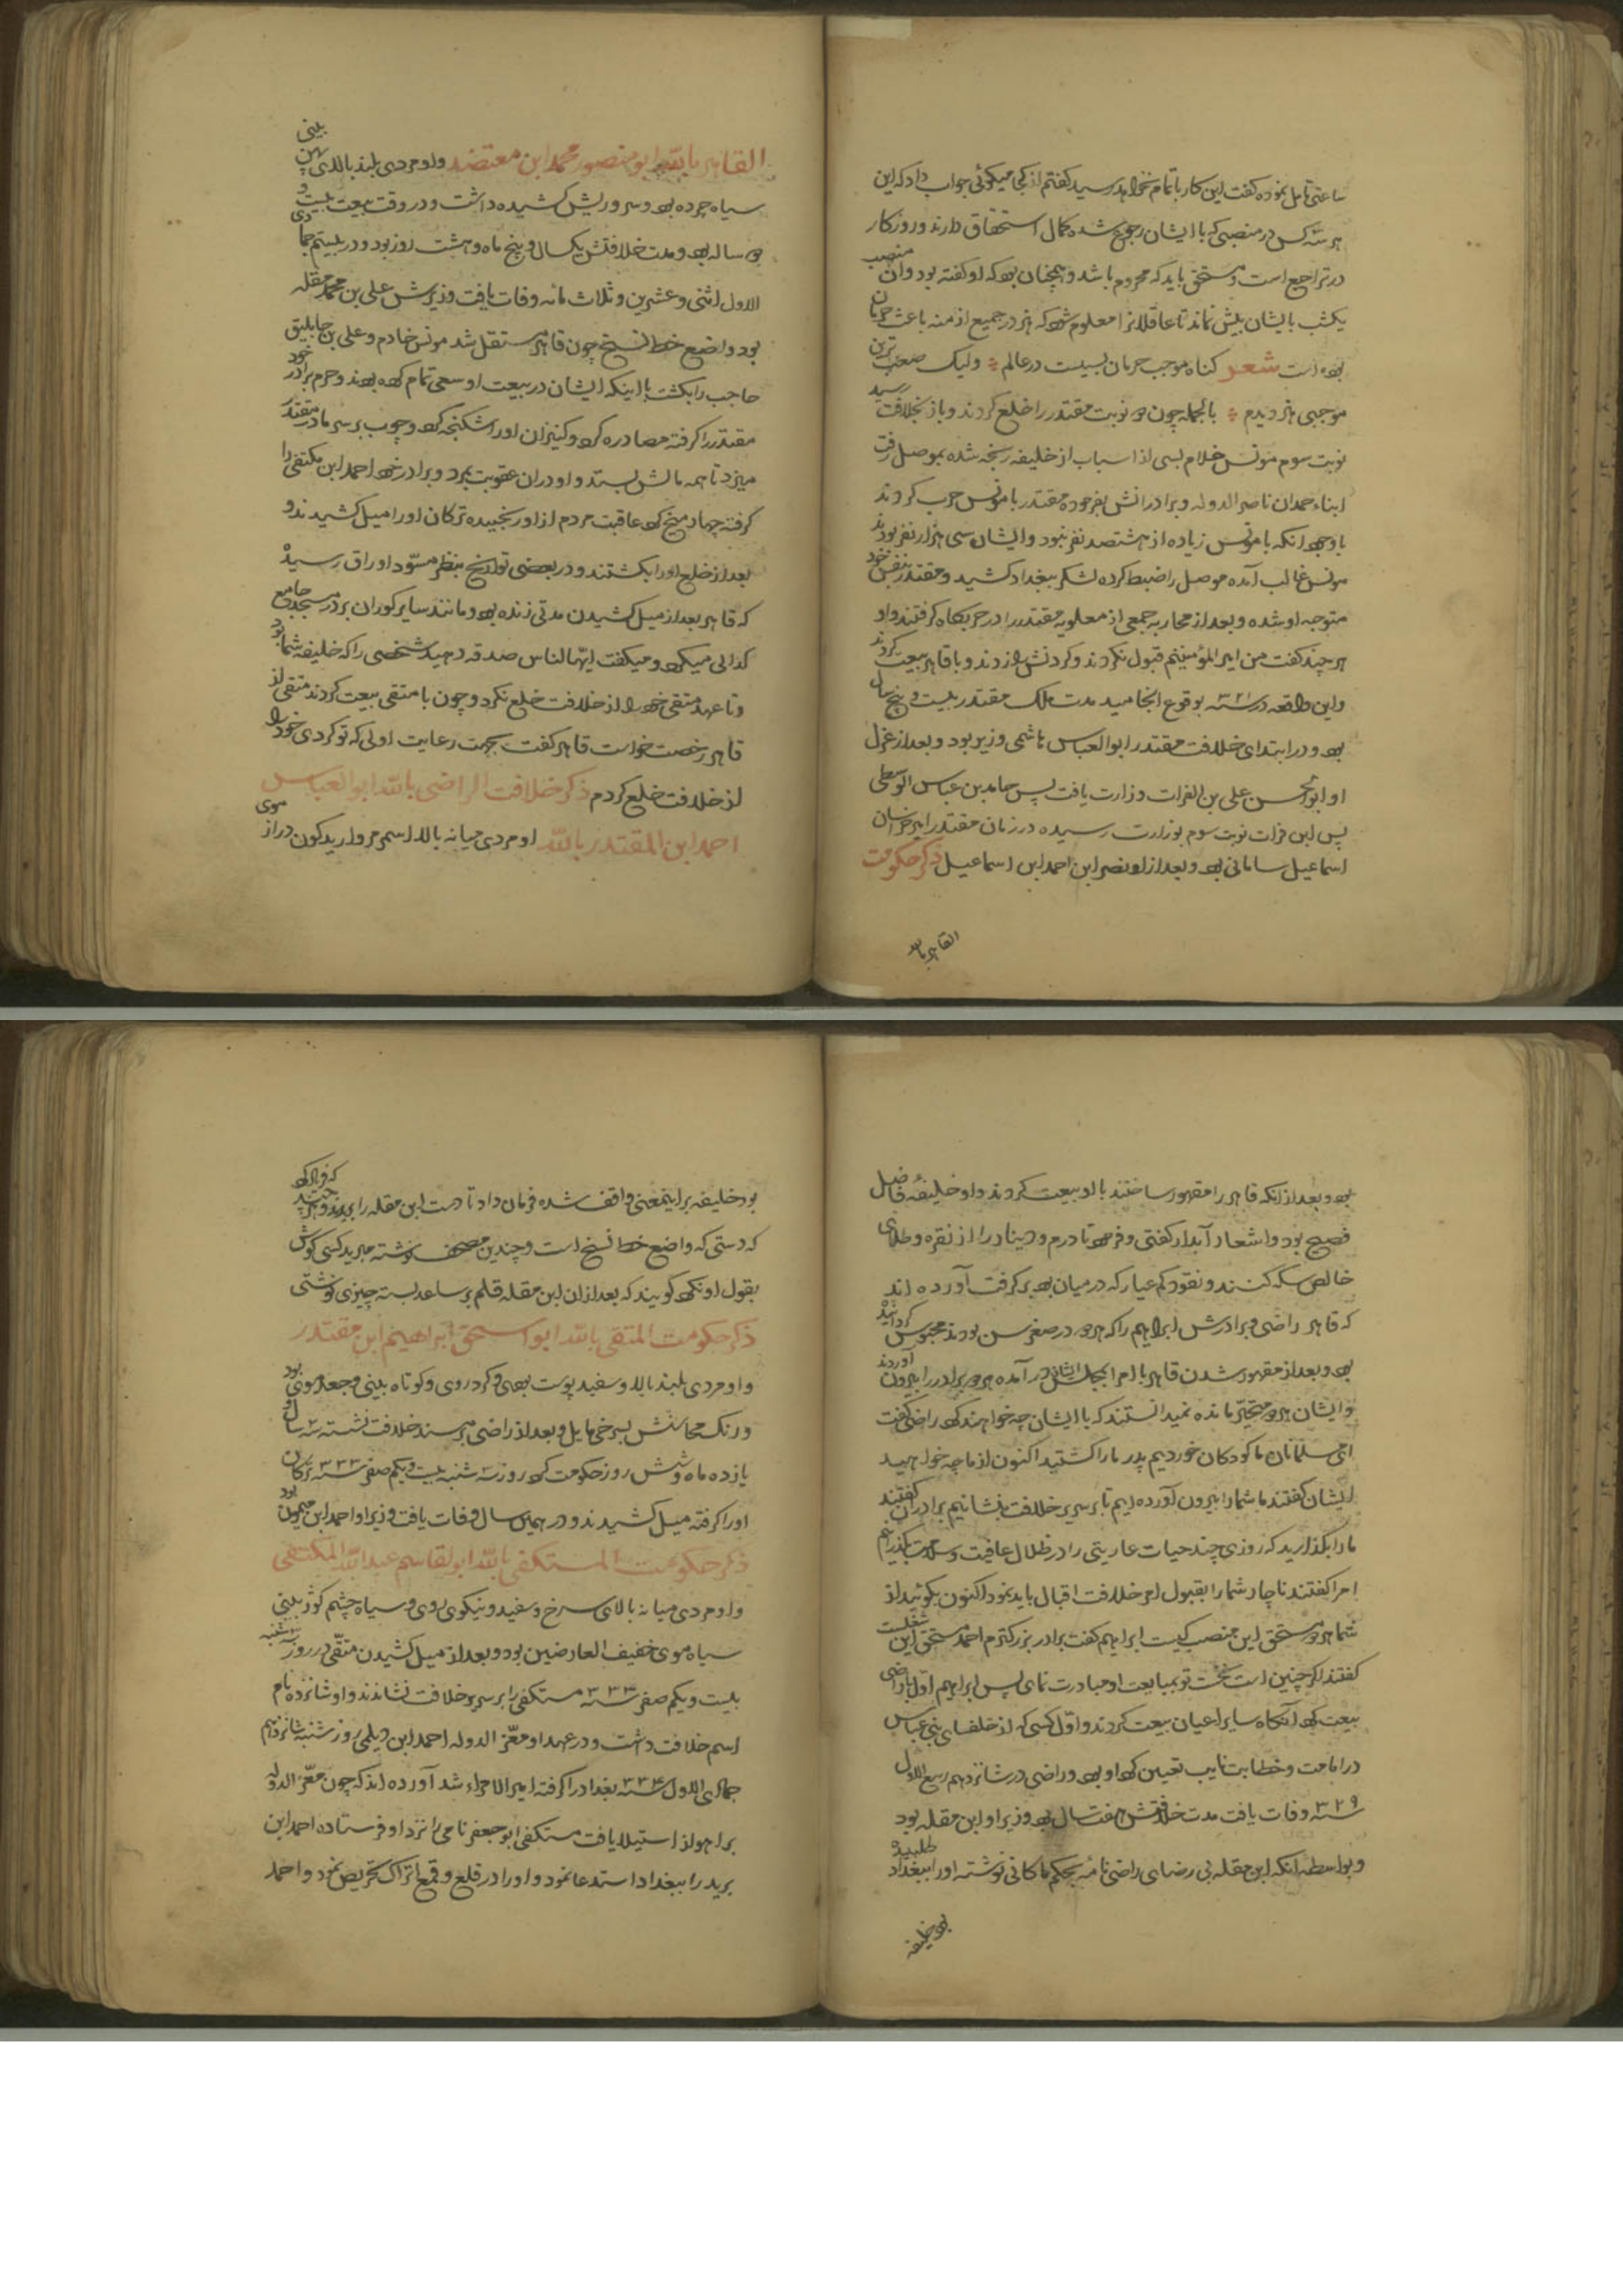 ساعتی تامل نموده گفت این کار باتمام نخواهد رسید گفتم از کجا میگوئی جواب داد که این
هر سه کس در منصبی که با ایشان رجوع شده کمال استحقاق دارند و روزگار
در تراجع است و مستحق باید که محروم باشد و همچنان بود که او گفته بود و آن منصب
یکشب با ایشان بیش نماند تا عاقلانرا معلوم شود که هنر در جمیع ازمنه باعث حرمان
بوده است شعر گناه موجب حرمان بسیست در عالم ولیک صعب ترین
موجبی هنر دیدم بالجمله چون دو نوبت مقتدر را خلع کردند و باز بخلافت رسید
نوبت سوم مونس خادم بسی از اسباب از خلیفه رنجه شده بموصل رفت
ابناء حمدان ناصر الدوله و برادرانش بفرموده مقتدر با مونس حرب کردند
با وجود آنکه با مونس زیاده از هشتصد نفر نبود و ایشان سی هزار نفر بودند
مونس غالب آمده موصل را ضبط کرده لشکر ببغداد کشید و مقتدر بنفس خود
متوجه او شده و بعد از محاربه جمعی از مغاربه مقتدر را در حربگاه گرفتند و او
هر چند گفت من امیر المؤمنینم قبول نکردند و گردنش زدند و با قاهر بیعت کردند
و این واقعه در سنه ۳۲۱ بوقوع انجامید مدت ملک مقتدر بیست و پنج سال
بود و در ابتدای خلافت مقتدر ابو العباس هاشمی وزیر بود و بعد از عزل
او ابو الحسن علی بن الفرات وزارت یافت پس حامد بن عباس الواسطی
پس ابن فرات نوبت سوم بوزارت رسیده در زمان مقتدر امیر خراسان
اسماعیل سامانی بود و بعد از او نصر ابن احمد ابن اسماعیل ذکر حکومت
القاهر بالله
القاهر بالله ابو منصور محمد ابن معتضد و او مردی بلند بالای پهن بینی
سیاه چرده بود و سر و ریش کشیده داشت و در وقت بیعت بیست و
دو ساله بود و مدت خلافتش یکسال و پنج ماه و هشت روز بود و در بیستم جمادی
الاول اثنی و عشرین و ثلاث مائه وفات یافت وزیرش علی بن محمد مقله
بود واضع خط نسخ چون قاهر مستقل شد مونس خادم و علی بن جابلیق
حاجب را بکشت با اینکه ایشان در بیعت او سعی تمام کرده بودند و حرم برادر خود
مقتدر را گرفته مصادره کرد و کنیزان او را شکنجه کرد و چوب بر سر مادر مقتدر
میزد تا همه مالش بستد و او در آن عقوبت بمرد و برادر خود احمد ابن مکتفی را
گرفته چهار میخ کرد عاقبت مردم از او رنجیده ترکان او را میل کشیدند و
بعد از خلع او را بکشتند و در بعضی تواریخ بنظر مسوّد اوراق رسیده
که قاهر بعد از میل کشیدن مدتی زنده بود و مانند سایر کوران بر در مسجد جامع
گدائی میکرد و میگفت ایها الناس صدقه دهید شخصی را که خلیفه شما بود
و تا عهد متقی خود را از خلافت خلع نکرد و چون با متقی بیعت کردند متقی از
قاهر رخصت خواست قاهر گفت جهت رعایت اولی که تو کردی خود را
از خلافت خلع کردم ذکر خلافت الراضی بالله ابو العباس
احمد ابن المقتدر بالله او مردی میانه بالا اسمر مروارید گون دراز موی
بود و بعد از آنکه قاهر را مقهور ساختند با او بیعت کردند و او خلیفهٔ فاضل
فصیح بود و اشعار آبدار گفتی و فرمود تا درم و دینار را از نقره و طلای
خالص سکه کنند و نقود کم عیار که در میان بود بر گرفت آورده اند
که قاهر راضی و برادرش ابراهیم را که هر دو در صغر سن بودند محبوس گردانیده
بود و بعد از مقهور شدن قاهر با امرا بمجلس ایشان در آمده هر دو برادر را بیرون آوردند
و ایشان هر دو متحیر مانده نمیدانستند که با ایشان چه خواهند کرد راضی گفت
ای مسلمانان ما کودکان خوردیم پدر ما را کشتید اکنون از ما چه خواهید
ایشان گفتند ما شما را بیرون آورده ایم تا بر سریر خلافت بنشانیم برادران گفتند
ما را بگذارید که روزی چند حیات عاریتی را در ظلال عافیت و سلامت بگذرانیم
امرا گفتند ناچار شما را بقبول امر خلافت اقبال باید نمود اکنون بگوئید از
شما هر دو مستحق این منصب کیست ابراهیم گفت برادر بزرگترم احمد مستحق این شغلست
گفتند اگر چنین است نخست تو بمبایعت او مبادرت نمای پس ابراهیم اول با راضی
بیعت کرد آنگاه سایر اعیان بیعت کردند و اوّل کسی که از خلفای بنی عباس
در امامت و خطابت نایب تعیین کرد او بود و راضی در شانزدهم ربیع الاول
سنه ۳۲۹ وفات یافت مدت خلافتش هفت سال بود وزیر او ابن مقله بود
و بواسطه آنکه ابن مقله بی رضای راضی نامه بجکم ماکانی نوشته او را ببغداد طلبیده
بود خلیفه
بود خلیفه بر اینمعنی واقف شده فرمان داد تا دست ابن مقله را بریدند و هر چند که فریاد کرد
که دستی که واضع خط نسخ است و چندین مصحف نوشته مبرید کسی گوش
بقول او نکرد گویند که بعد از آن ابن مقله قلم بر ساعد بسته چیزی نوشتی
ذکر حکومت المتقی بالله ابو اسحق ابراهیم ابن مقتدر
و او مردی بلند بالا و سفید پوست بود و گرد روی و کوتاه بینی و جعد موی بود
و رنگ محاسنش بسرخی مایل و بعد از راضی بر مسند خلافت نشسته سه سال و
یازده ماه و شش روز حکومت کرد روز سه شنبه بیست و یکم صفر سنه ۳۳۳ ترکان
او را گرفته میل کشیدند و در همان سال وفات یافت وزیر او احمد ابن میمون بود
ذکر حکومت المستکفی بالله ابو لقاسم عبد الله المکتفی
و او مردی میانه بالای سرخ و سفید و نیکوی روی و سیاه چشم کوژ بینی
سیاه موی خفیف العارضین بود و بعد از میل کشیدن متقی در روز سه شنبه
بیست و یکم صفر سنه ۳۳۳ مستکفی را بر سریر خلافت نشاندند و او شانزده نام
اسم خلافت داشت و در عهد او معز الدوله احمد ابن دیلمی روز شنبه شانزدهم
جمادی الاول سنه ۳۳۴ بغداد را گرفته امیر الامراء شد آورده اند که چون معز الدوله
بر اهواز استیلا یافت مستکفی ابو جعفر نامی را نزد او فرستاده احمد ابن
برید را ببغداد استدعا نمود و او را در قلع و قمع اتراک تحریص نمود و احمد